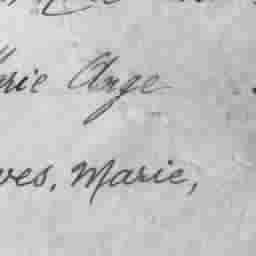 rie Ange
ves, Marie,